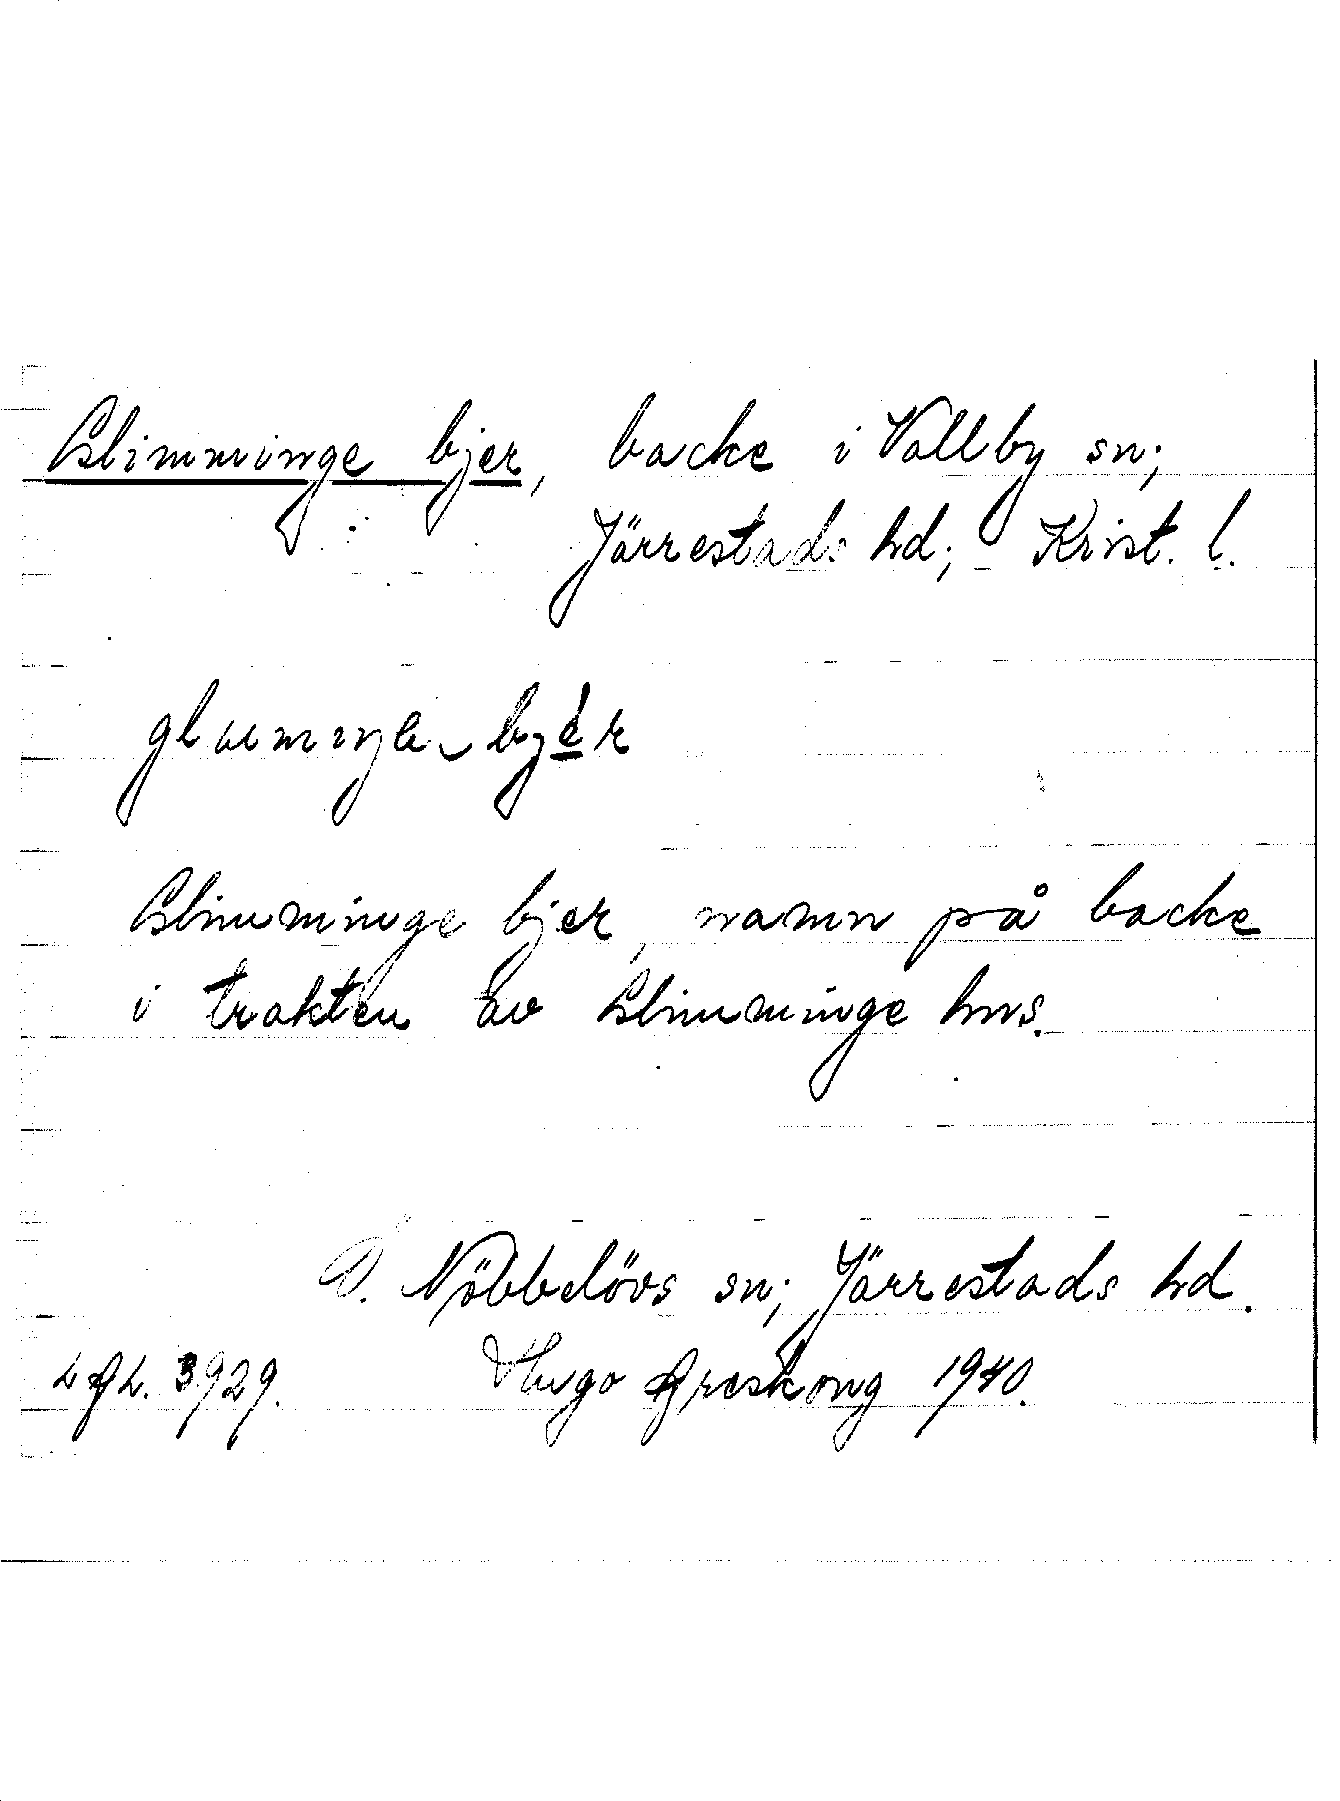 Glimminge bjer, backe i Vallby sn;
Järrestads hd; Krist. l.
Glimminge bjer, namn på backe
i trakten av Glimminge hus.
Ö. Nöbbelövs sn; Järrestads hd.
3929. Hugo Areskoug 1940.